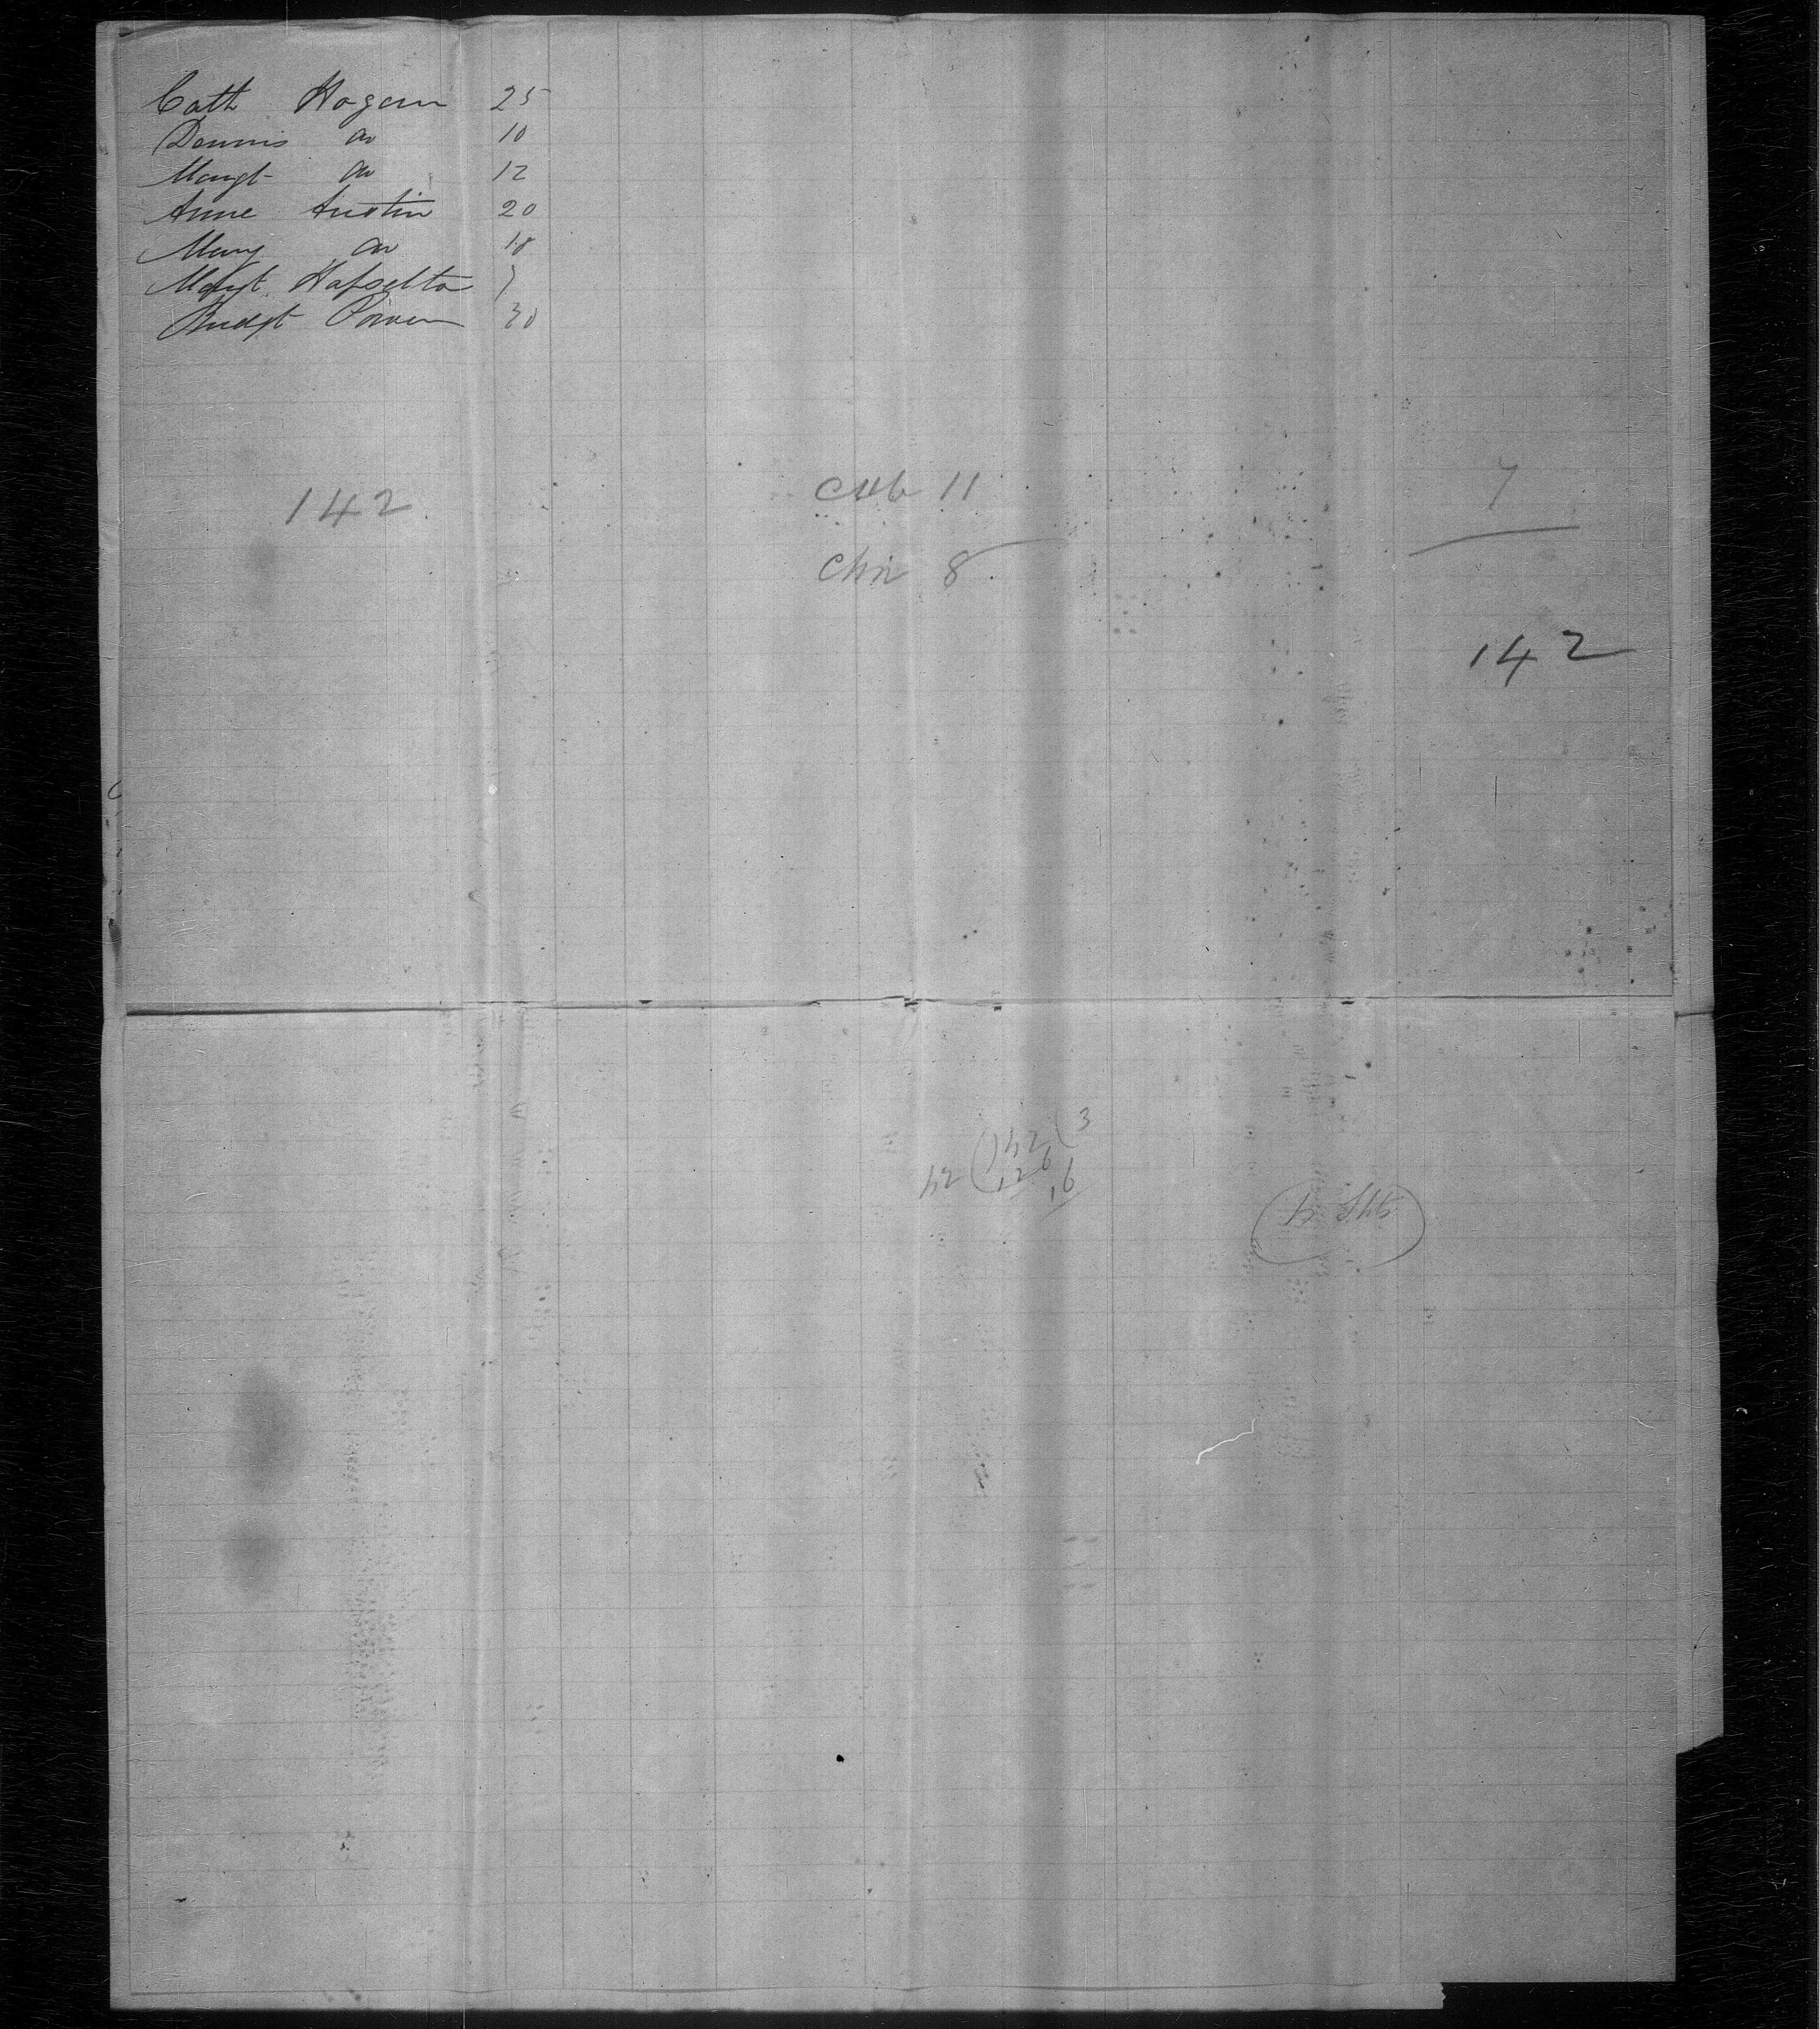 Cath Hogan 25
Dennis do 10
Margt do 12
Anne Austin 20
Mary do 18
Margt. Hafselto
Bridgt Power 30
7
142 Cab 11
Chn 8
142
42 ) 142 ( 3
126
16